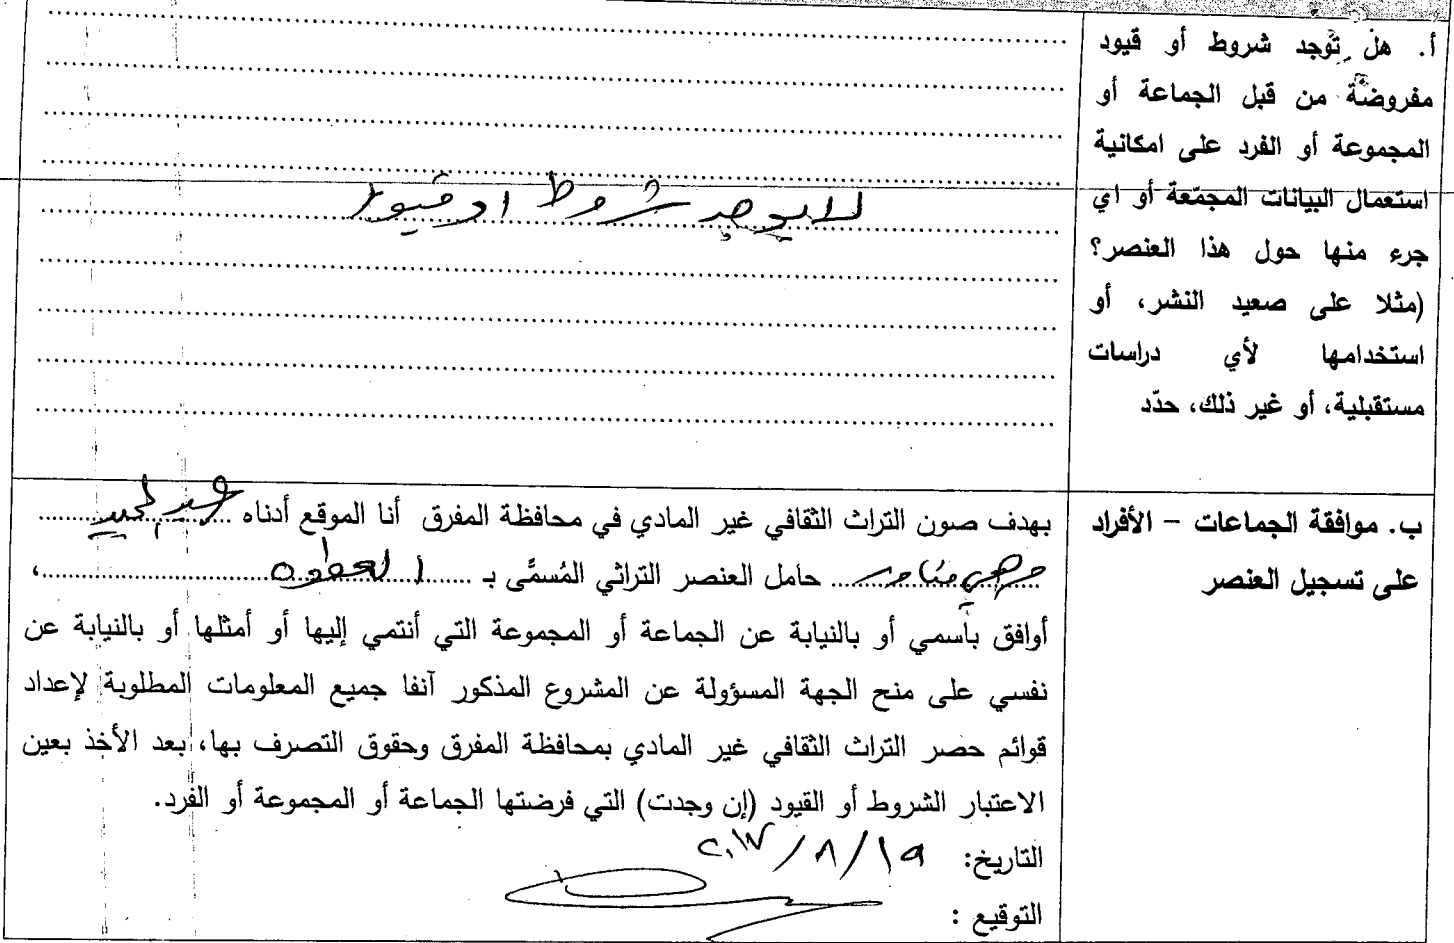 أ. هل توجد شروط أو قيود
مفروضة من قبل الجماعة أو
المجموعة أو الفرد على امكانية
استعمال البيانات المجمّعة أو اي
جرء منها حول هذا العنصر؟
(مثلا على صعيد النشر، أو
استخدامها لأي دراسات
مستقبلية، أو غير ذلك، حدّد
لا يوجد شروط او قيود
ب. موافقة الجماعات - الأفراد
على تسجيل العنصر
بهدف صون التراث الثقافي غير المادي في محافظة المفرق أنا الموقع أدناه
حامل العنصر التراثي المُسمَّى بـ العطوه،
أوافق بأسمي أو بالنيابة عن الجماعة أو المجموعة التي أنتمي إليها أو أمثلها أو بالنيابة عن
نفسي على منح الجهة المسؤولة عن المشروع المذكور آنفا جميع المعلومات المطلوبة لإعداد
قوائم حصر التراث الثقافي غير المادي بمحافظة المفرق وحقوق التصرف بها، بعد الأخذ بعين
الاعتبار الشروط أو القيود (إن وجدت) التي فرضتها الجماعة أو المجموعة أو الفرد.
التاريخ: ١٩/٨/٢٠١٧
التوقيع :